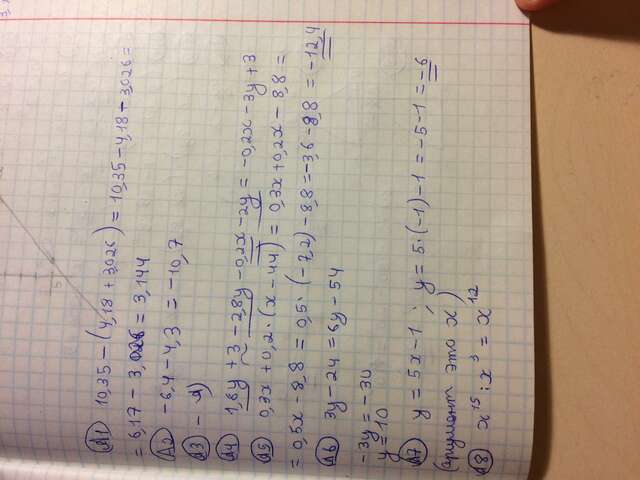 А1 10,35 - (4,18 + 3,026) = 10,35 - 4,18 - 3,026 =
= 6,17 - 3,026 = 3,144
А2 -6,4 - 4,3 = -10,7
А3 -
А4 1,6y + 3 - 2,8y - 0,2x - 2y = -0,2x - 3y + 3
А5 0,3x + 0,2·(x - 44) = 0,3x + 0,2x - 8,8 =
= 0,5x - 8,8 = 0,5·(-7,2) - 8,8 = -3,6 - 8,8 = -12,4
А6 3y - 24 = 6y - 54
-3y = -30
y = 10
А7 y = 5x - 1; y = 5·(-1) - 1 = -5 - 1 = -6
(аргумент это x)
А8 x¹⁵ : x³ = x¹²